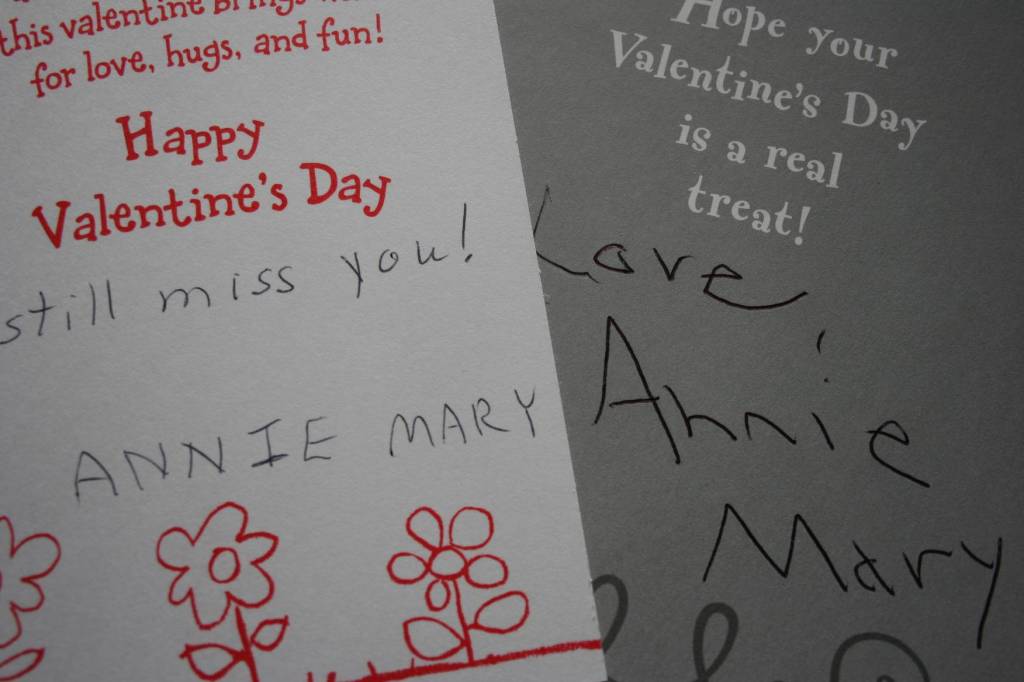 this valentine brings
for love, hugs, and fun!
Happy
Valentine's Day
still miss you!
ANNIE MARY
Hope your
Valentine's Day
is a real
treat!
Love
Annie
Mary